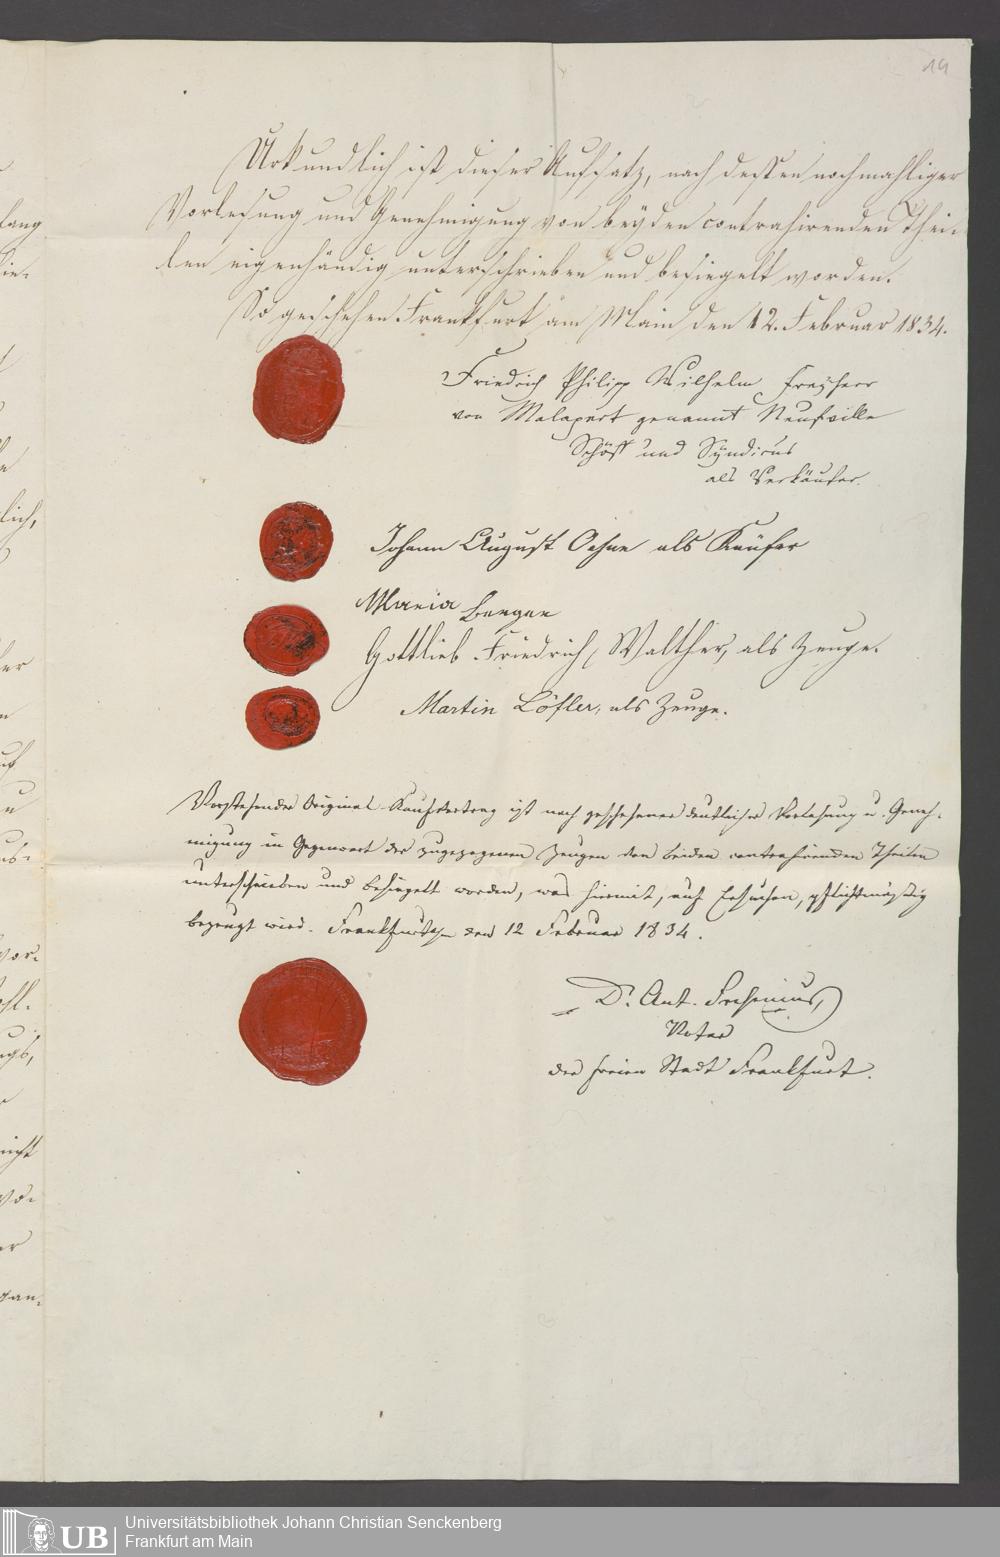 19
Urkundlich ist dieser Aufsatz, nach dessen nochmahliger
Vorlesung und Genehmigung von beyden contrahirenden Thei-
len eigenhändig unterschrieben und besiegelt worden.
So geschehen Frankfurt am Main den 12. Februar 1834.
Friedrich Philipp Wilhelm Freyherr
von Malapert genannt Neufville
Schöff und Syndicus
als Verkäufer.
Johann August Ochne als Käufer
Maria
Gottlieb Friedrich Walther, als Zeuge.
Martin Löfler, als Zeuge.
Vorstehender Original Kaufvertrag ist nach geschehener deutlicher Vorlesung u. Geneh-
migung in Gegenwart der zugezogenen Zeugen von beiden contrahirenden Theilen
unterschrieben und besiegelt worden, was hiermit, auf Ersuchen, pflichtmäßig
bezeugt wird. Frankfurt den 12 Februar 1834.
Dr. Ant. Fresenius,
Notar
der freien Stadt Frankfurt.
lang
lich,
vor-
nicht
UB
Universitätsbibliothek Johann Christian Senckenberg
Frankfurt am Main